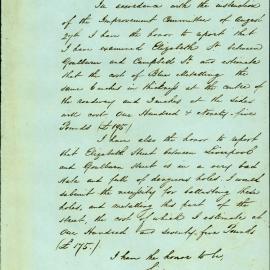 In accordance with the instruction
of the Improvement Committee of August
29th I have the honor to report that
I have examined Elizabeth St between
Goulburn and Campbell St and estimate
that the cost of Blue Metalling the
same 6 inches in thickness at the centre of
the roadway and 3 inches at the sides
will cost One Hundred & Ninety-five
Pounds (£195)
I have also the honor to report
that Elizabeth Street between Liverpool
and Goulburn Street is in a very bad
state and full of dangerous holes I would
submit the necessity for ballasting these
holes, and metalling this part of the
street, the cost of which I estimate at
One Hundred and seventy five Pounds
(£175.)
I have the honor to be,